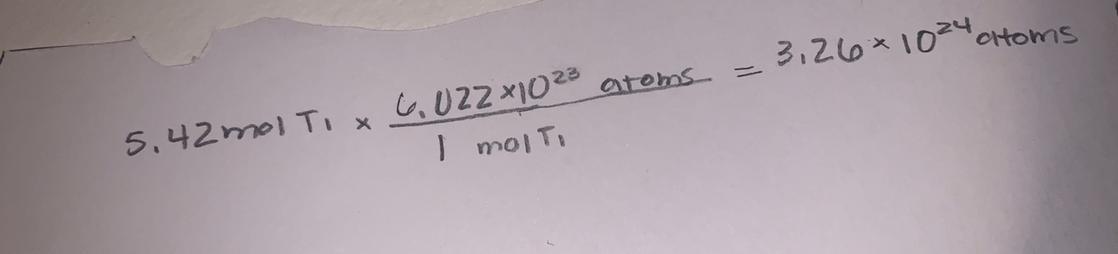 5.42 mol Ti × 6.022×10²³ atoms / 1 mol Ti = 3.26 × 10²⁴ atoms